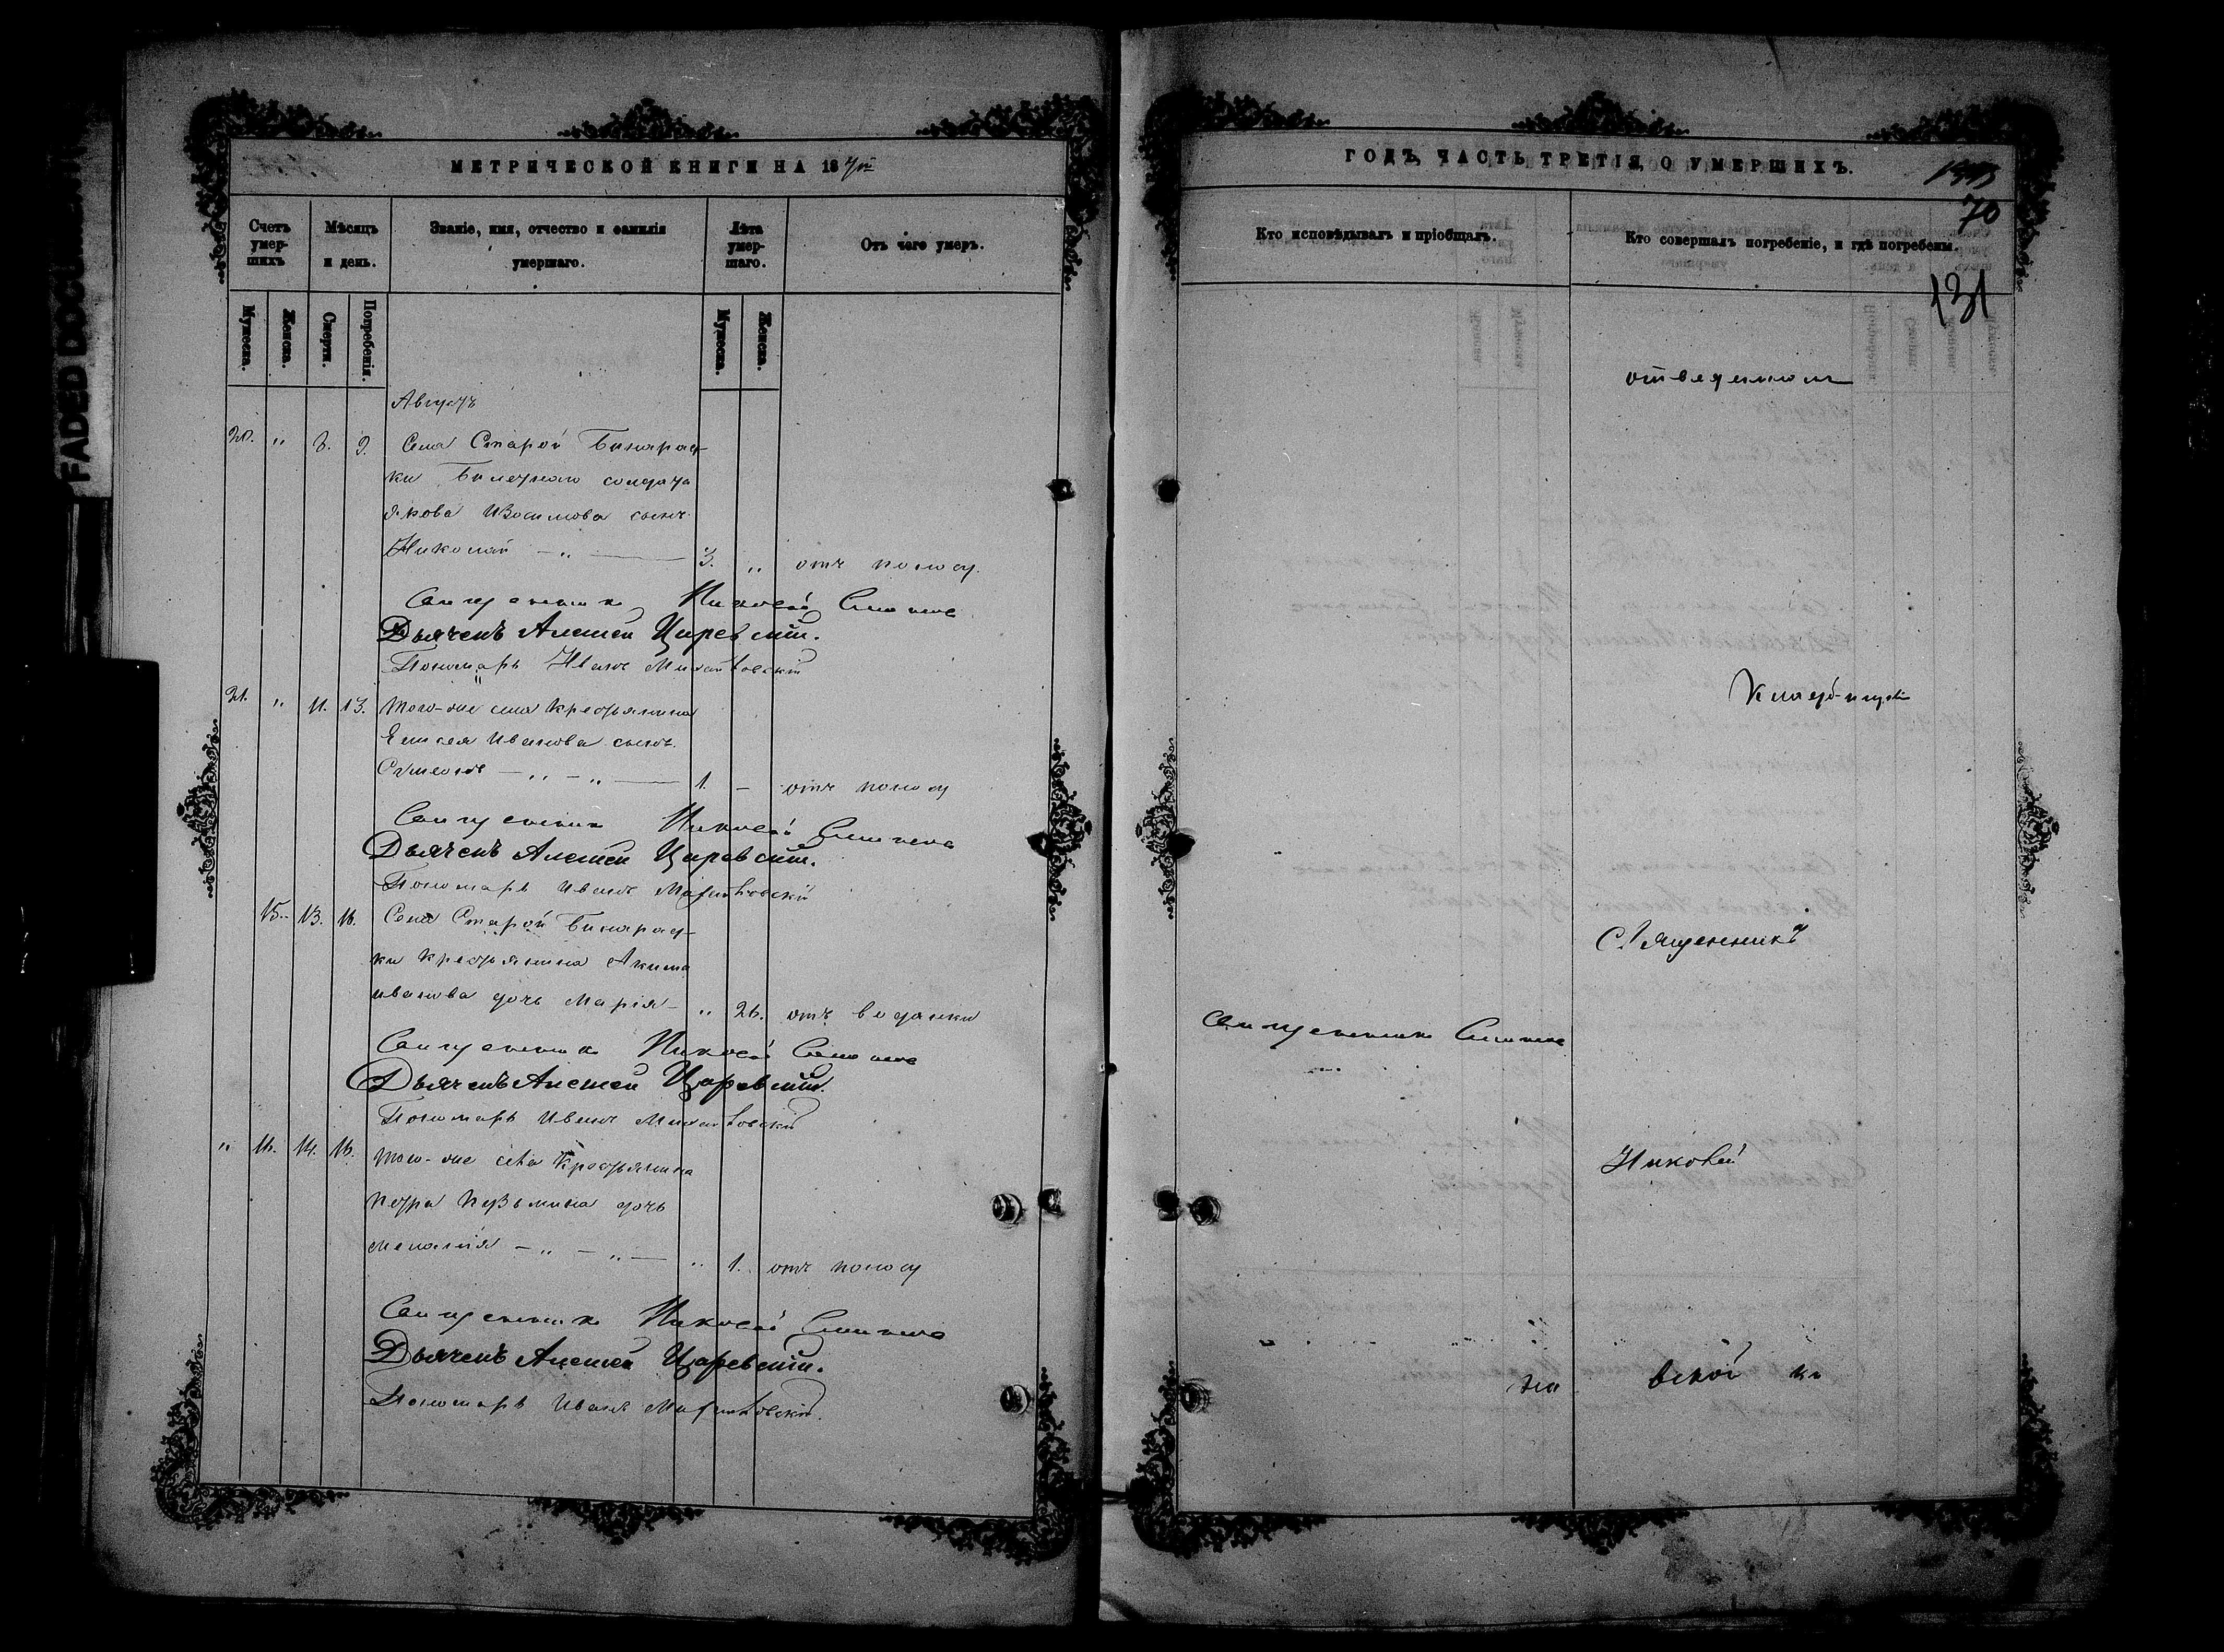 FADED DOCUMENT
МЕТРИЧЕСКОЙ КНИГИ НА 18
Счетъ умер-шихъ
Мѣсяцъ и день.
Званіе, имя, отчество и фамилія умершаго.
Лѣта умер-шаго.
Отъ чего умеръ.
Мужеска.
Женска.
Смерти.
Погребенія.
Мужеска.
Женска.
Августъ
20. „ 8. 9. Села Старой Бинарад-
ки Билетнаго солдата
Якова сынъ
Николай — „ — 3. „ отъ поносу.
Священникъ Николай
Дьячекъ Алексей Царевскій.
Пономарь Иванъ
21. „ 11. 13. Того-же села крестьянина
Елисея Иванова сынъ
Симеонъ — „ — „ — 1. — отъ поносу
Священникъ Николай
Дьячекъ Алексей Царевскій.
Пономарь Иванъ
15. 13. 16. Села Старой Бинарад-
ки крестьянина Акима
Иванова дочь Марія — „ 26. отъ водянки
Священникъ Николай
Дьячекъ Алексей Царевскій.
Пономарь Иванъ
„ 16. 14. 16. Того-же села Крестьянина
Петра Кузьмина дочь
Меланія — „ — „ — „ 1. отъ поносу
Священникъ Николай
Дьячекъ Алексей Царевскій.
Пономарь Иванъ
ГОДЪ, ЧАСТЬ ТРЕТІЯ, О УМЕРШИХЪ.
70
Кто исповѣдывалъ и пріобщалъ.
Кто совершалъ погребеніе, и гдѣ погребены.
131
отведенномъ
Кладбищѣ
Священникъ
Священникъ
Николай
на